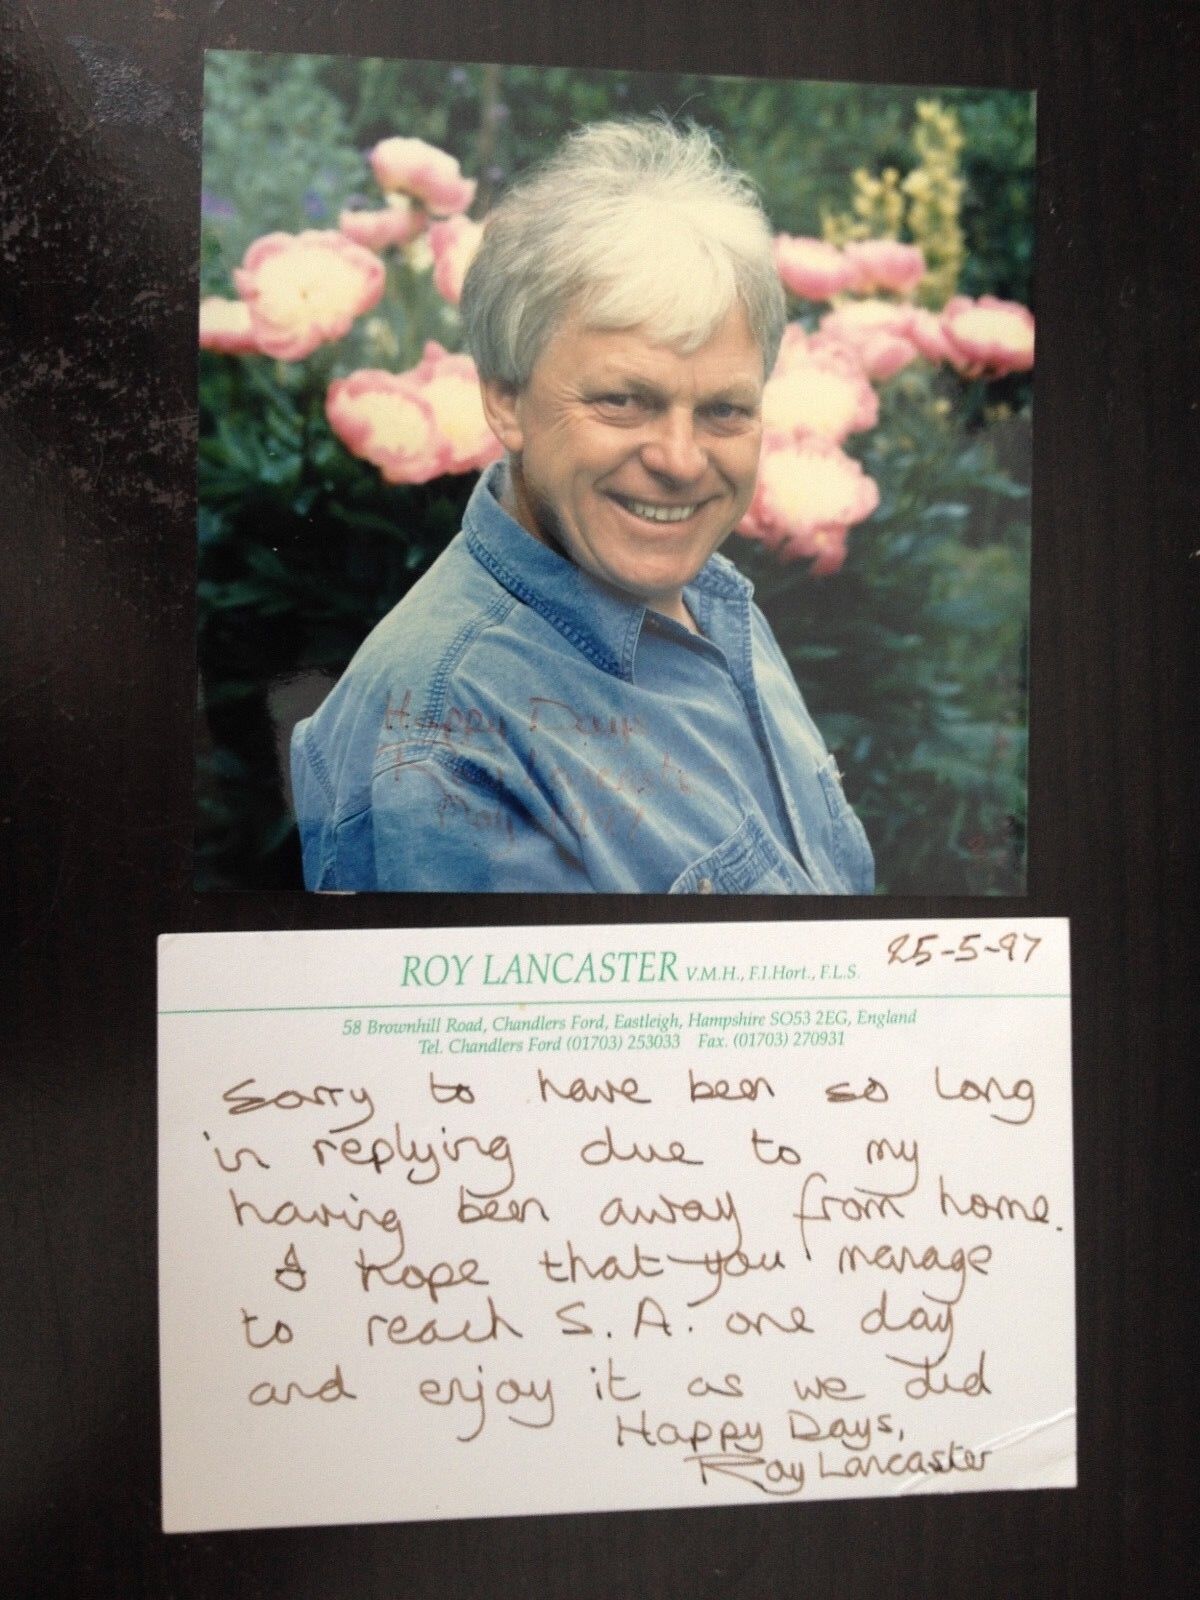 Happy Days
Roy Lancaster
May 1997
ROY LANCASTER V.M.H., F.I.Hort., F.L.S.
25-5-97
58 Brownhill Road, Chandlers Ford, Eastleigh, Hampshire SO53 2EG, England
Tel. Chandlers Ford (01703) 253033 Fax. (01703) 270931
Sorry to have been so long
in replying due to my
having been away from home.
I hope that you manage
to reach S.A. one day
and enjoy it as we did
Happy Days,
Roy Lancaster